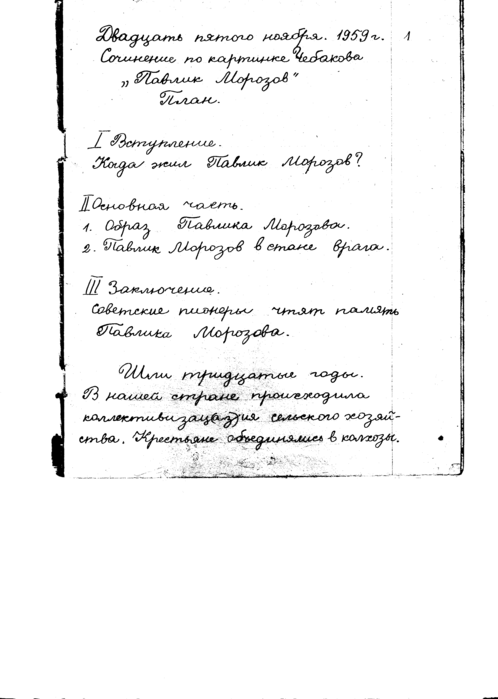 Двадцать пятого ноября. 1959 г. 1
Сочинение по картинке Чебакова
„Павлик Морозов"
План.
I Вступление.
Когда жил Павлик Морозов?
II Основная часть.
1. Образ Павлика Морозова.
2. Павлик Морозов в стане врага.
III Заключение.
Советские пионеры чтят память
Павлика Морозова.
Шли тридцатые годы.
В нашей стране происходила
коллективизаца(з)ия сельского хозяй-
ства. Крестьяне объединялись в колхозы.